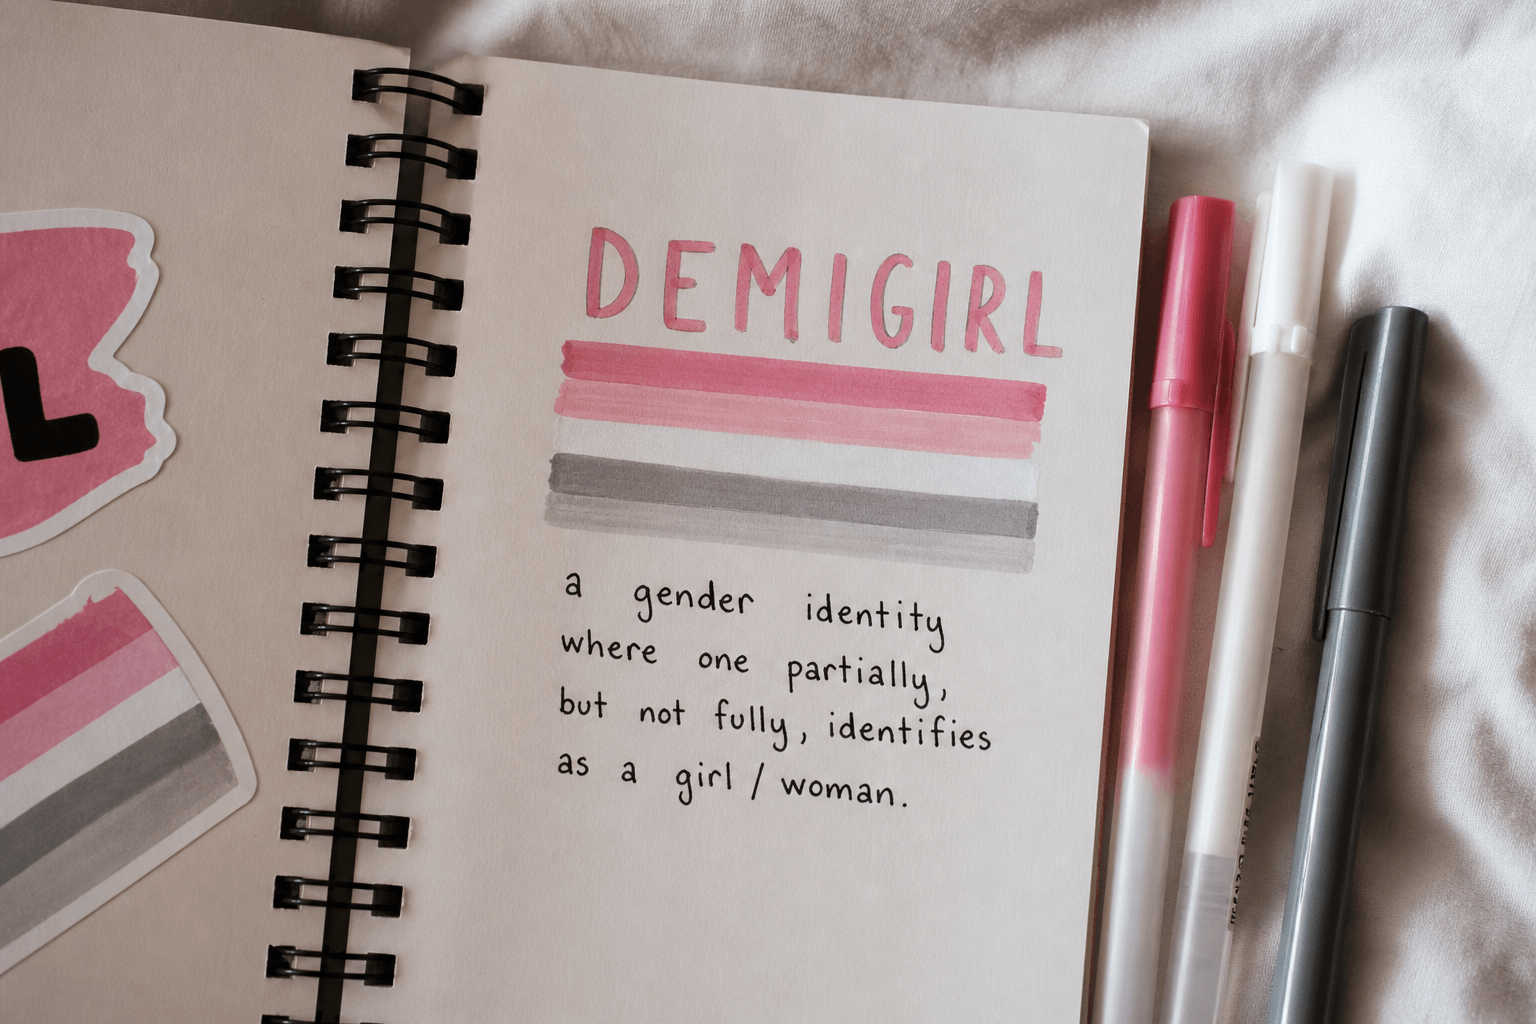 L
DEMIGIRL
a gender identity
where one partially,
but not fully, identifies
as a girl / woman.